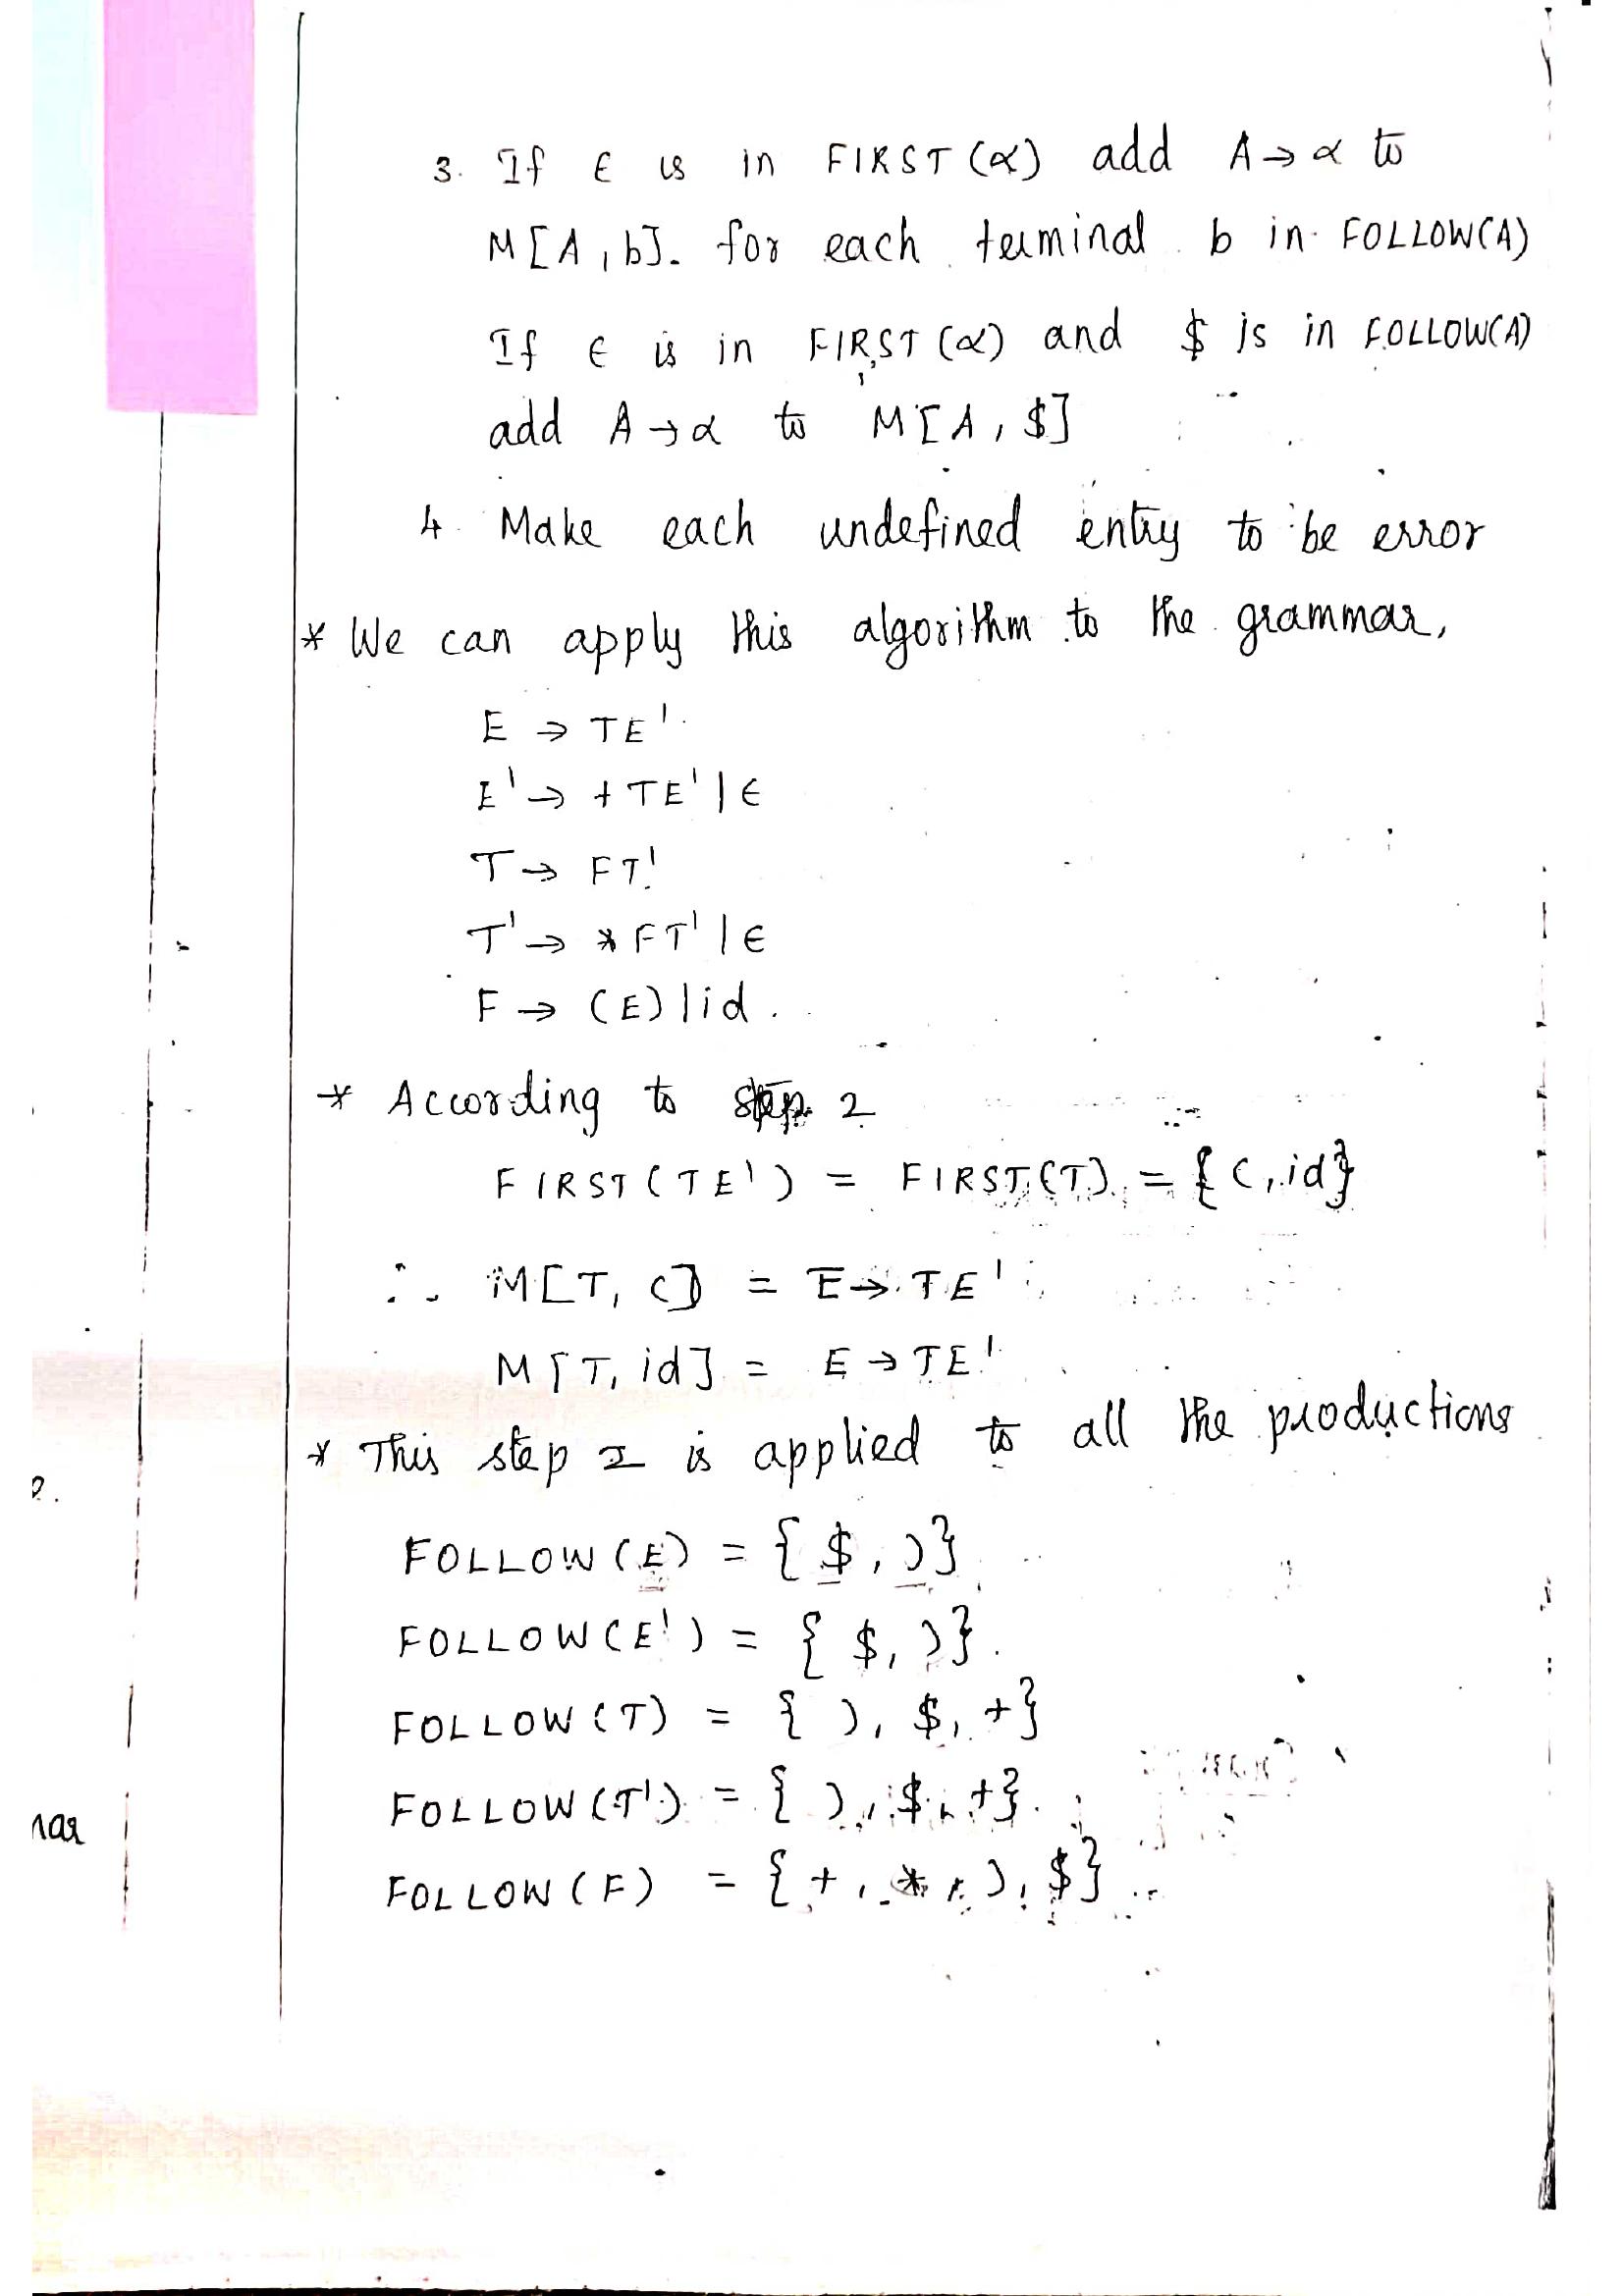 3. If ϵ is in FIRST (α) add A → α to
M[A, b]. for each terminal b in FOLLOW(A)
If ϵ is in FIRST (α) and $ is in FOLLOW(A)
add A → α to M[A, $]
4. Make each undefined entry to be error
* We can apply this algorithm to the grammar,
E → TE'
E' → +TE' | ϵ
T → FT'
T' → *FT' | ϵ
F → (E) | id.
* According to step 2
FIRST(TE') = FIRST(T) = {(, id}
∴ M[T, (] = E → TE'
M[T, id] = E → TE'
* This step 2 is applied to all the productions
FOLLOW(E) = {$, )}
FOLLOW(E') = {$, )}.
FOLLOW(T) = { ), $, +}
FOLLOW(T') = { ), $, +}.
FOLLOW(F) = {+, *, ), $}